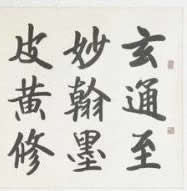 玄通至
妙翰墨
皮黄修